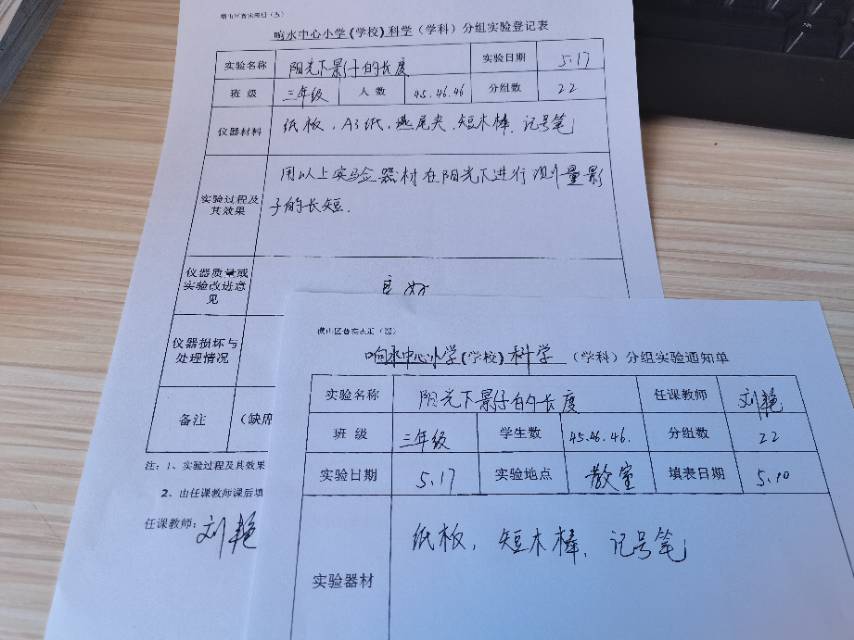 响水中心小学(学校)科学(学科)分组实验登记表
实验名称 阳光下影子的长度 实验日期 5.17
班 级 三年级 人 数 45.46.46 分组数 22
仪器材料 纸板、A3纸、燕尾夹、短木棒、记号笔
实验过程及其效果 用以上实验器材在阳光下进行测量影
子的长短.
仪器质量或
实验改进意
见
良好
仪器损坏与
处理情况
备注 (缺席
注: 1、实验过程及其效果
2、由任课教师课后填
任课教师: 刘艳
响水中心小学(学校) 科学 (学科)分组实验通知单
实验名称 阳光下影子的长度 任课教师 刘艳
班 级 三年级 学生数 45.46.46. 分组数 22
实验日期 5.17 实验地点 教室 填表日期 5.10
实验器材 纸板, 短木棒, 记号笔